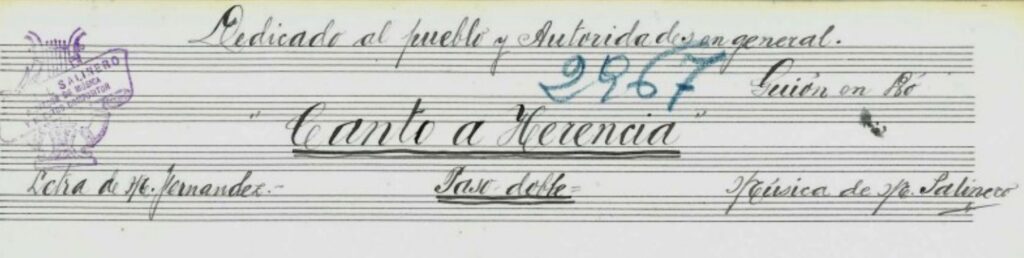 Dedicado al pueblo y Autoridades en general.
2967
Guión en Dó
"Canto a Herencia"
Letra de M. Fernandez.-
Paso-doble=
Música de M. Salinero
SALINERO